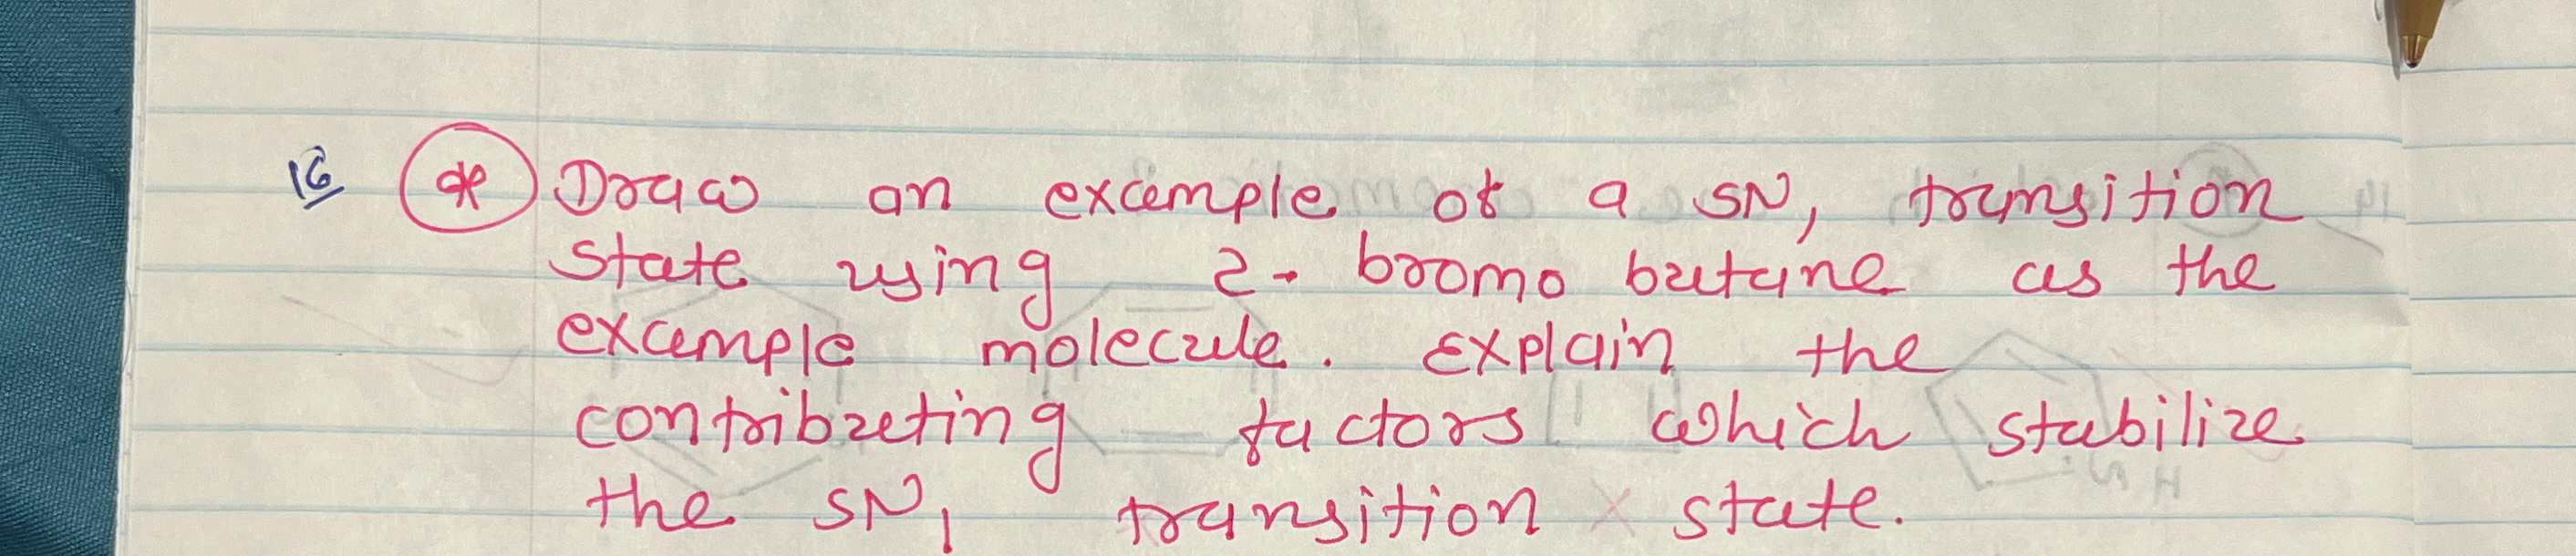 16 * Draw an example of a SN1 transition
state using 2-bromo butane as the
example molecule. Explain the
contributing factors which stabilize
the SN1 transition state.